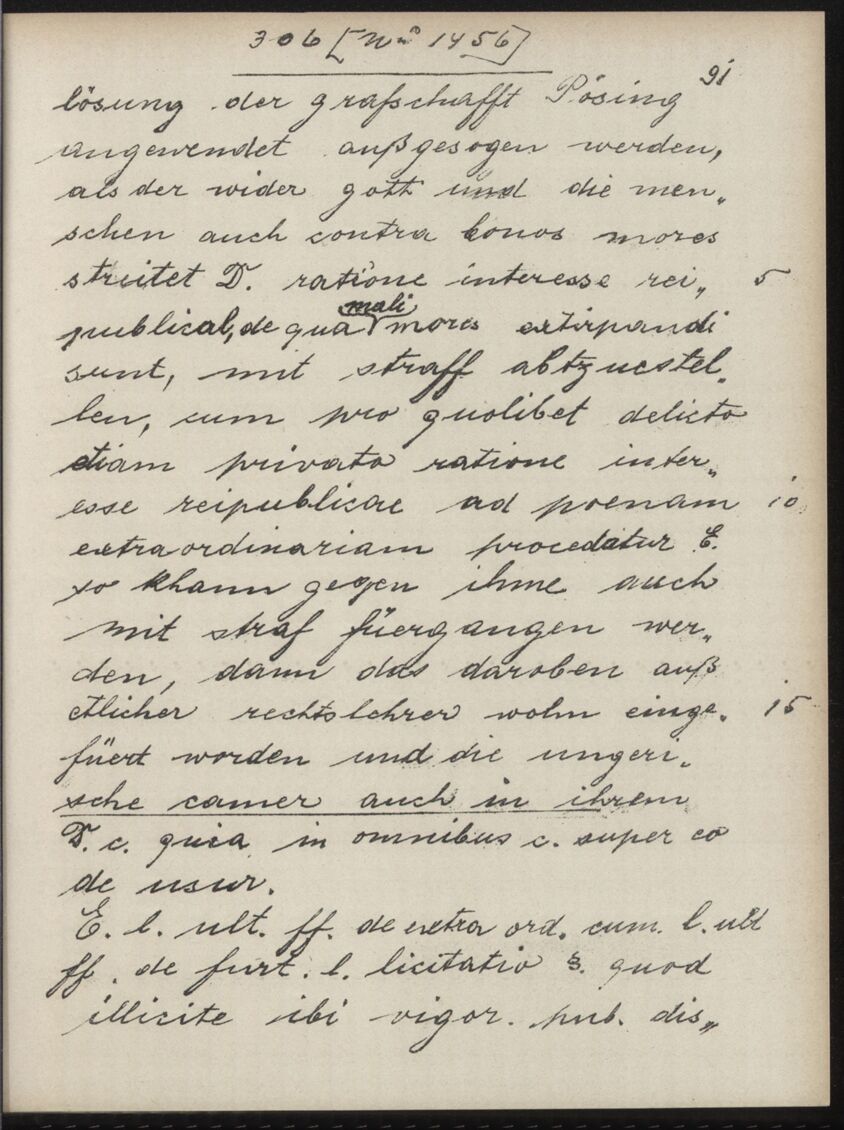 306 [No 1456]
91
lösung der grafschafft Pösing
angewendet außgesogen werden,
als der wider gott und die men„
schen auch contra bonos mores
streitet D. ratione interesse rei„ 5
publicae, de qua mali mores extirpandi
sunt, mit straff abtzustel„
len, cum pro quolibet delicto
etiam privato ratione inter„
esse reipublicae ad poenam 10
extraordinariam procedatur E.
so khann gegen ihme auch
mit straf füergangen wer„
den, dann das daroben auß
etlicher rechtslehrer wohn einge„ 15
füert worden und die ungeri„
sche camer auch in ihrem
D. c. quia in omnibus c. super eo
de usur.
E. l. ult. ff. de extra ord. cum. l. ult
ff. de furt. l. licitatio §. quod
illicite ibi vigor. pub. dis„